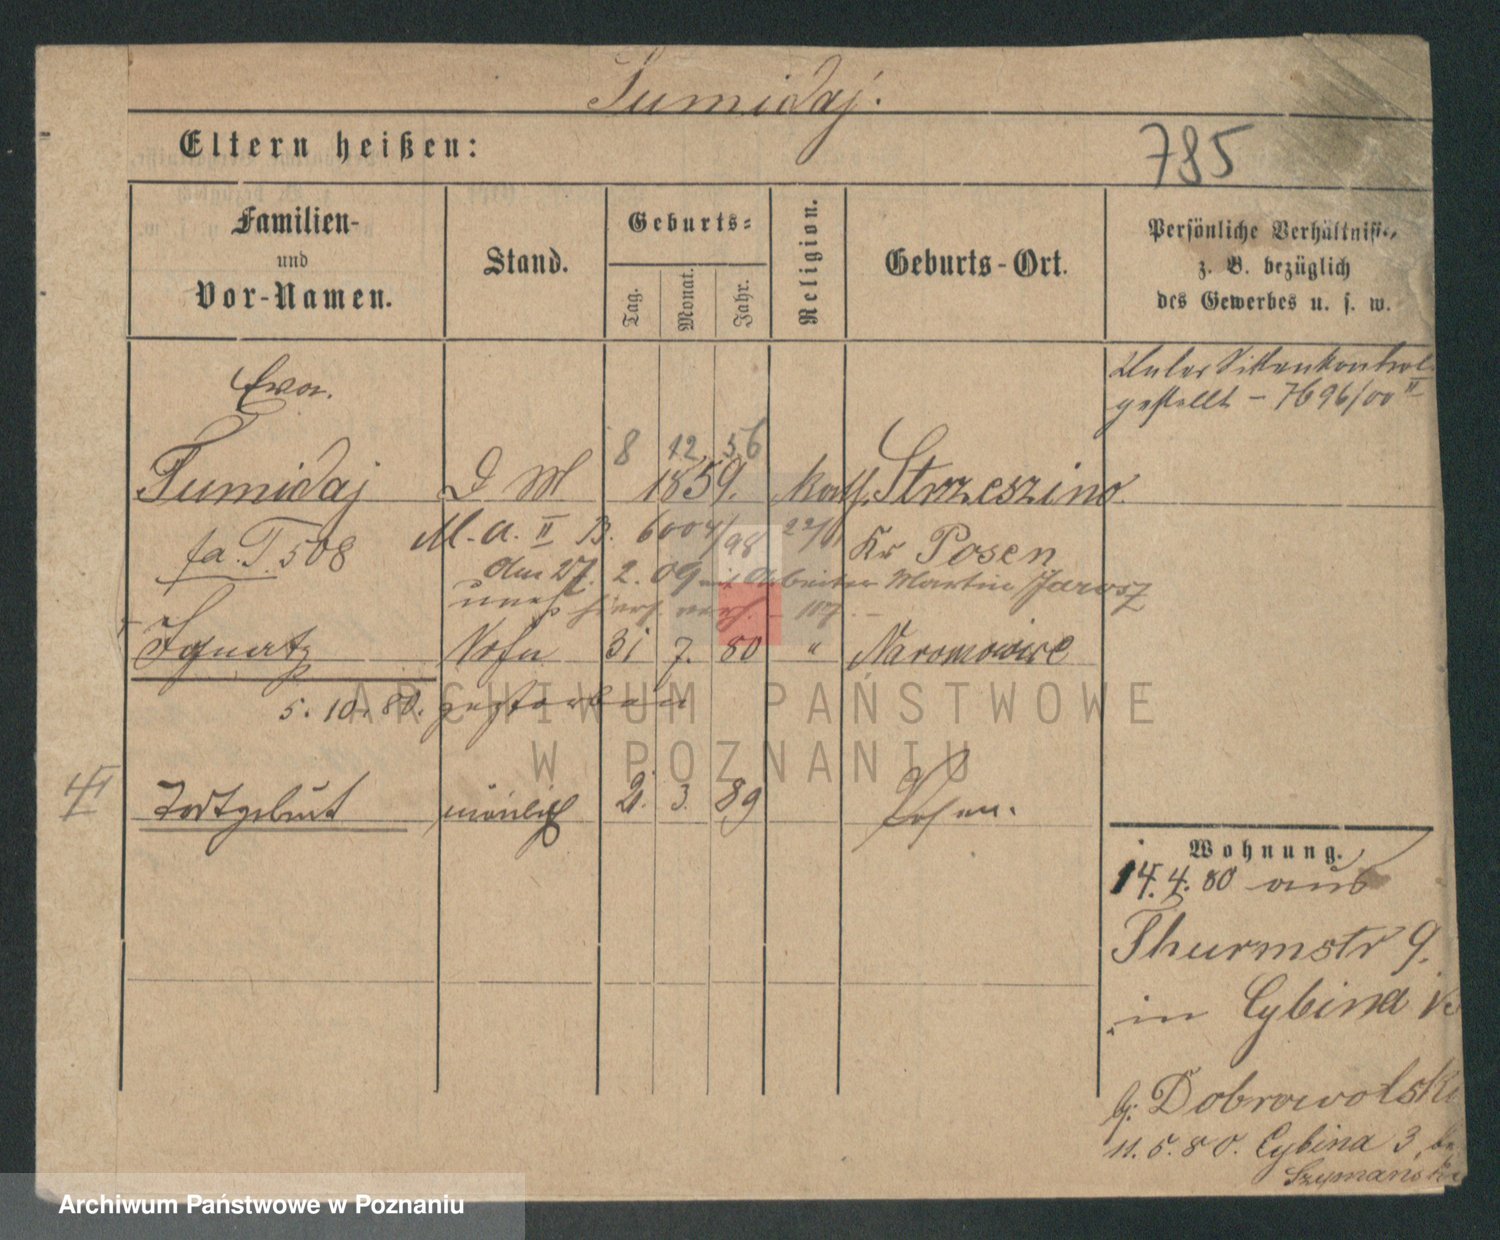 Tumidaj.
Eltern heißen:
785
Familien-
und
Vor-Namen.
Stand.
Geburts-
Tag.
Monat.
Jahr.
Religion.
Geburts-Ort.
Persönliche Verhältnisse,
z. B. bezüglich
des Gewerbes u. s. w.
Unter Sittenkontrol
gestellt – 7696/00 II
Eva.
8 12 56
Tumidaj D M 1859. kath. Strzeszino
fa. T. 508 M. a. II B. 6004/98 22/ Kr Posen
am 27. 2. 09 mit Arbeiter Martin Jarosz
hier verh.
Ignatz Sohn 31 7. 80 " Naromowice
5. 10. 80. gestorben
Todtgeburt mänlich 2. 3. 89 Posen.
Wohnung.
14. 4. 80 aus
Thurmstr 9.
in Cybina
b. Dobrowolski
11. 5. 80. Cybina 3, be
Szymanski
ARCHIWUM PAŃSTWOWE
W POZNANIU
Archiwum Państwowe w Poznaniu